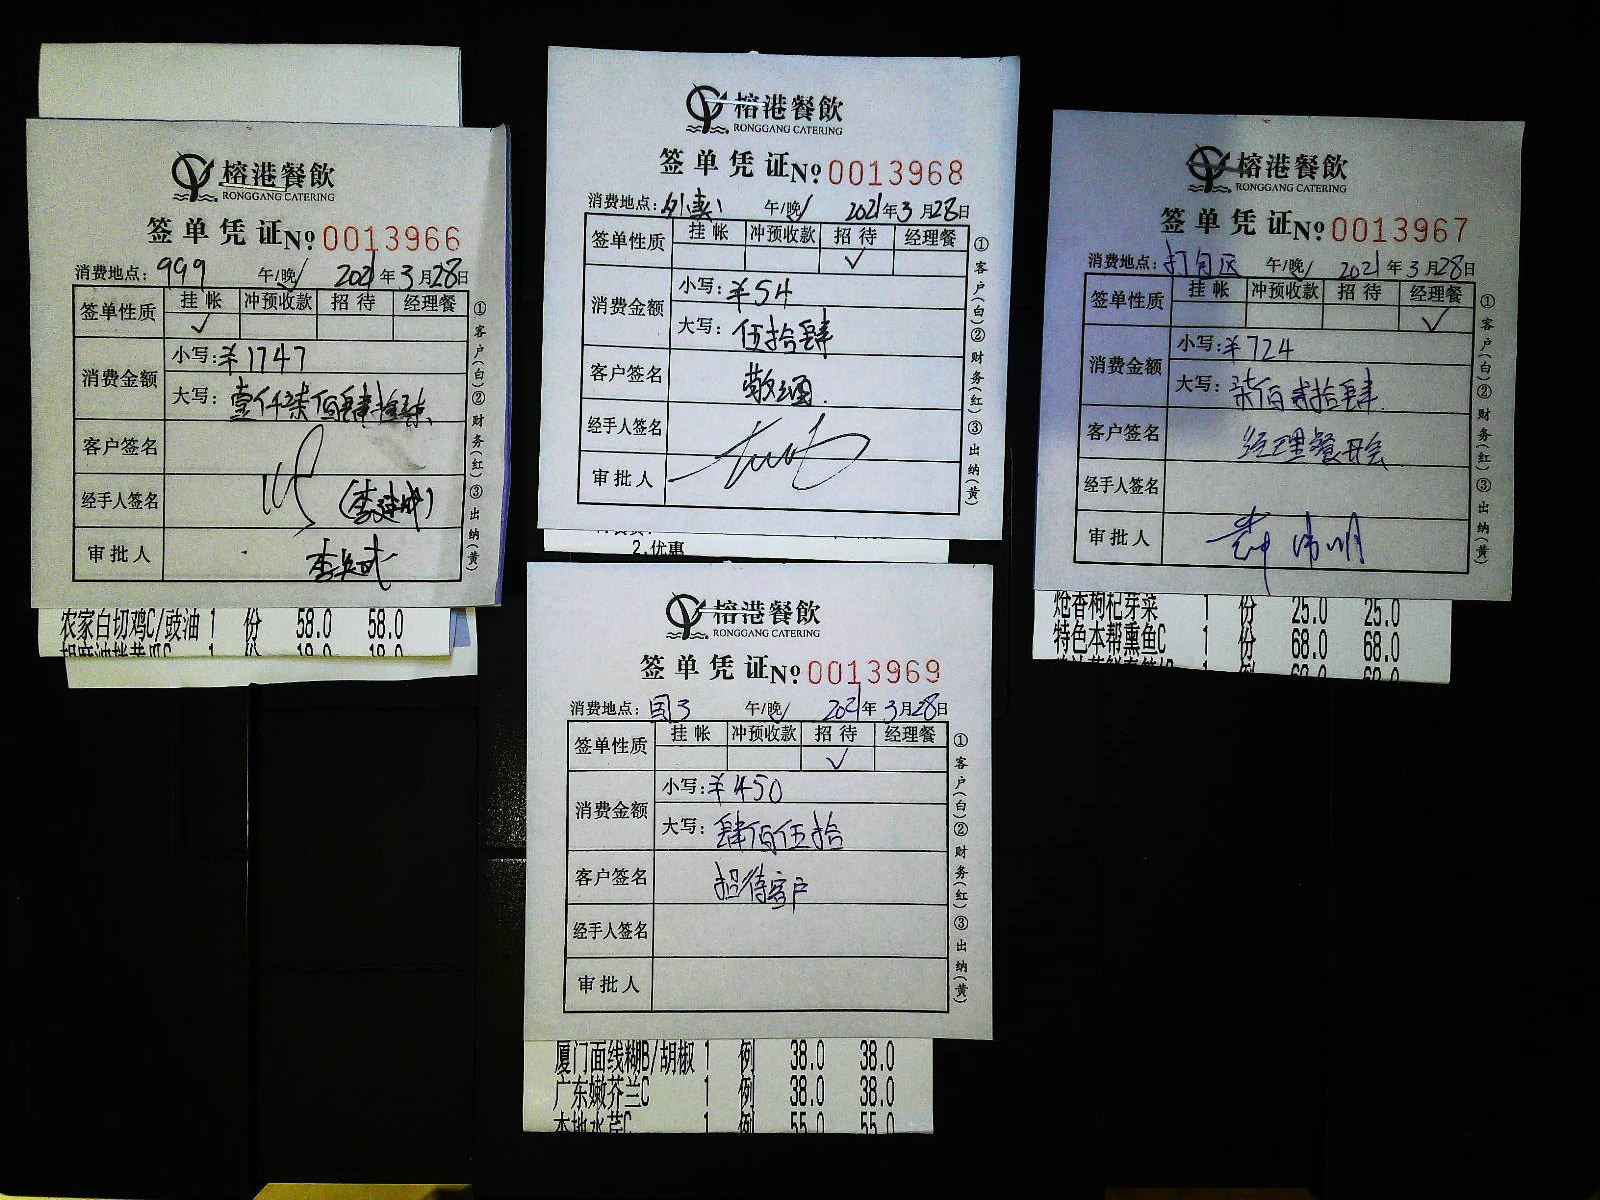 榕港餐飲
RONGGANG CATERING
签单凭证№ 0013966
消费地点: 999 午/晚 2021年3月28日
签单性质 挂帐 冲预收款 招待 经理餐
✓
消费金额 小写: ¥1747
大写: 壹仟柒佰肆拾柒
客户签名
经手人签名 (李建成)
审批人
①客户(白)②财务(红)③出纳(黄)
农家白切鸡C/豉油 1 份 58.0 58.0
榕港餐飲
RONGGANG CATERING
签单凭证№ 0013968
消费地点: 外卖 午/晚 2021年3月28日
签单性质 挂帐 冲预收款 招待 经理餐
✓
消费金额 小写: ¥54
大写: 伍拾肆
客户签名 敬酒
经手人签名
审批人
①客户(白)②财务(红)③出纳(黄)
2.优惠
榕港餐飲
RONGGANG CATERING
签单凭证№ 0013967
消费地点: 打包区 午/晚 2021年3月28日
签单性质 挂帐 冲预收款 招待 经理餐
✓
消费金额 小写: ¥724
大写: 柒佰贰拾肆
客户签名 经理餐开会
经手人签名
审批人
①客户(白)②财务(红)③出纳(黄)
炝香枸杞芽菜 1 份 25.0 25.0
特色本帮熏鱼C 1 份 68.0 68.0
榕港餐飲
RONGGANG CATERING
签单凭证№ 0013969
消费地点: 国3 午/晚 2021年3月28日
签单性质 挂帐 冲预收款 招待 经理餐
✓
消费金额 小写: ¥450
大写: 肆佰伍拾
客户签名 招待客户
经手人签名
审批人
①客户(白)②财务(红)③出纳(黄)
厦门面线糊B/胡椒 1 例 38.0 38.0
广东嫩芥兰C 1 例 38.0 38.0
本地水芹C 1 例 55.0 55.0